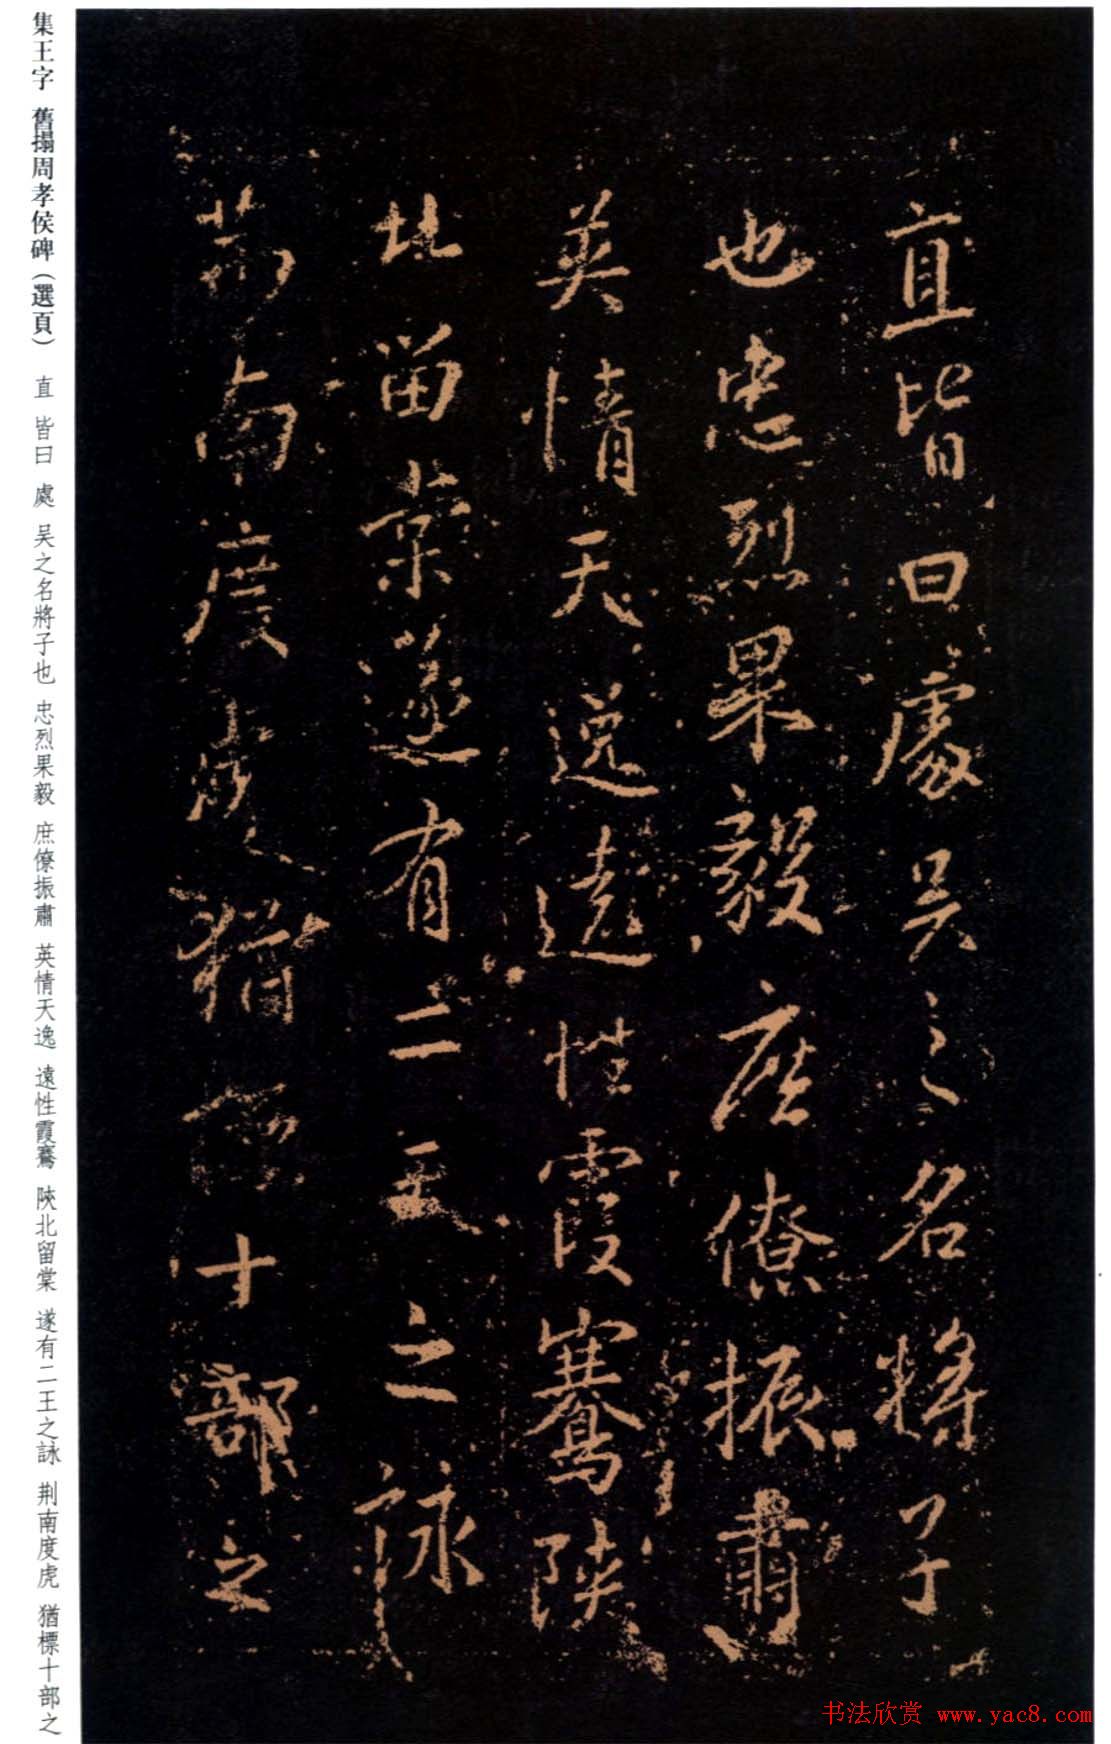 集王字 舊搨周孝侯碑（選頁） 直 皆曰 處 吴之名將子也 忠烈果毅 庶僚振肅 英情天逸 遠性霞騫 陝北留棠 遂有二王之詠 荆南度虎 猶標十部之
直皆曰處吴之名將子
也忠烈果毅庶僚振肅
英情天逸遠性霞騫陝
北留棠遂有二王之詠
荆南度虎猶標十部之
书法欣赏 www.yac8.com